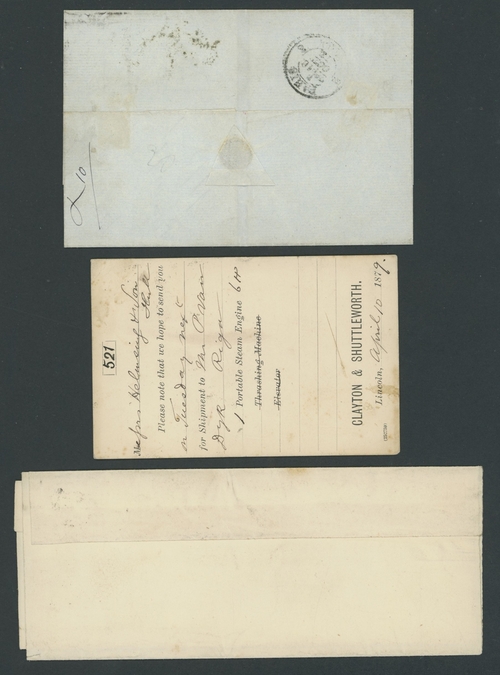 PARIS
10
521
CLAYTON & SHUTTLEWORTH.
Lincoln, April 10 1879.
Messrs Helmsing & Son
Hull
Please note that we hope to send you
on Tuesday next
for Shipment to Mr P. Van
Dyk Riga
1 Portable Steam Engine 6 HP
Thrashing Machine
Elevator